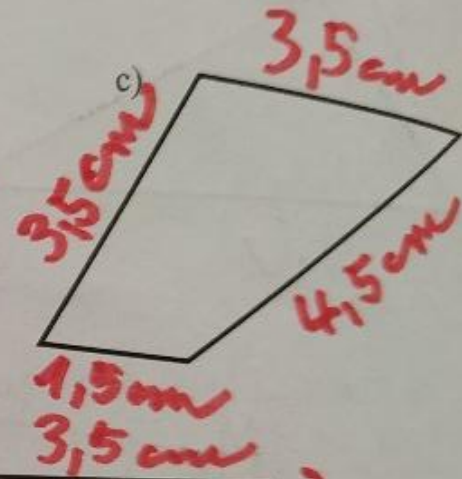 3,5 cm
c)
3,5 cm
4,5 cm
1,5 cm
3,5 cm